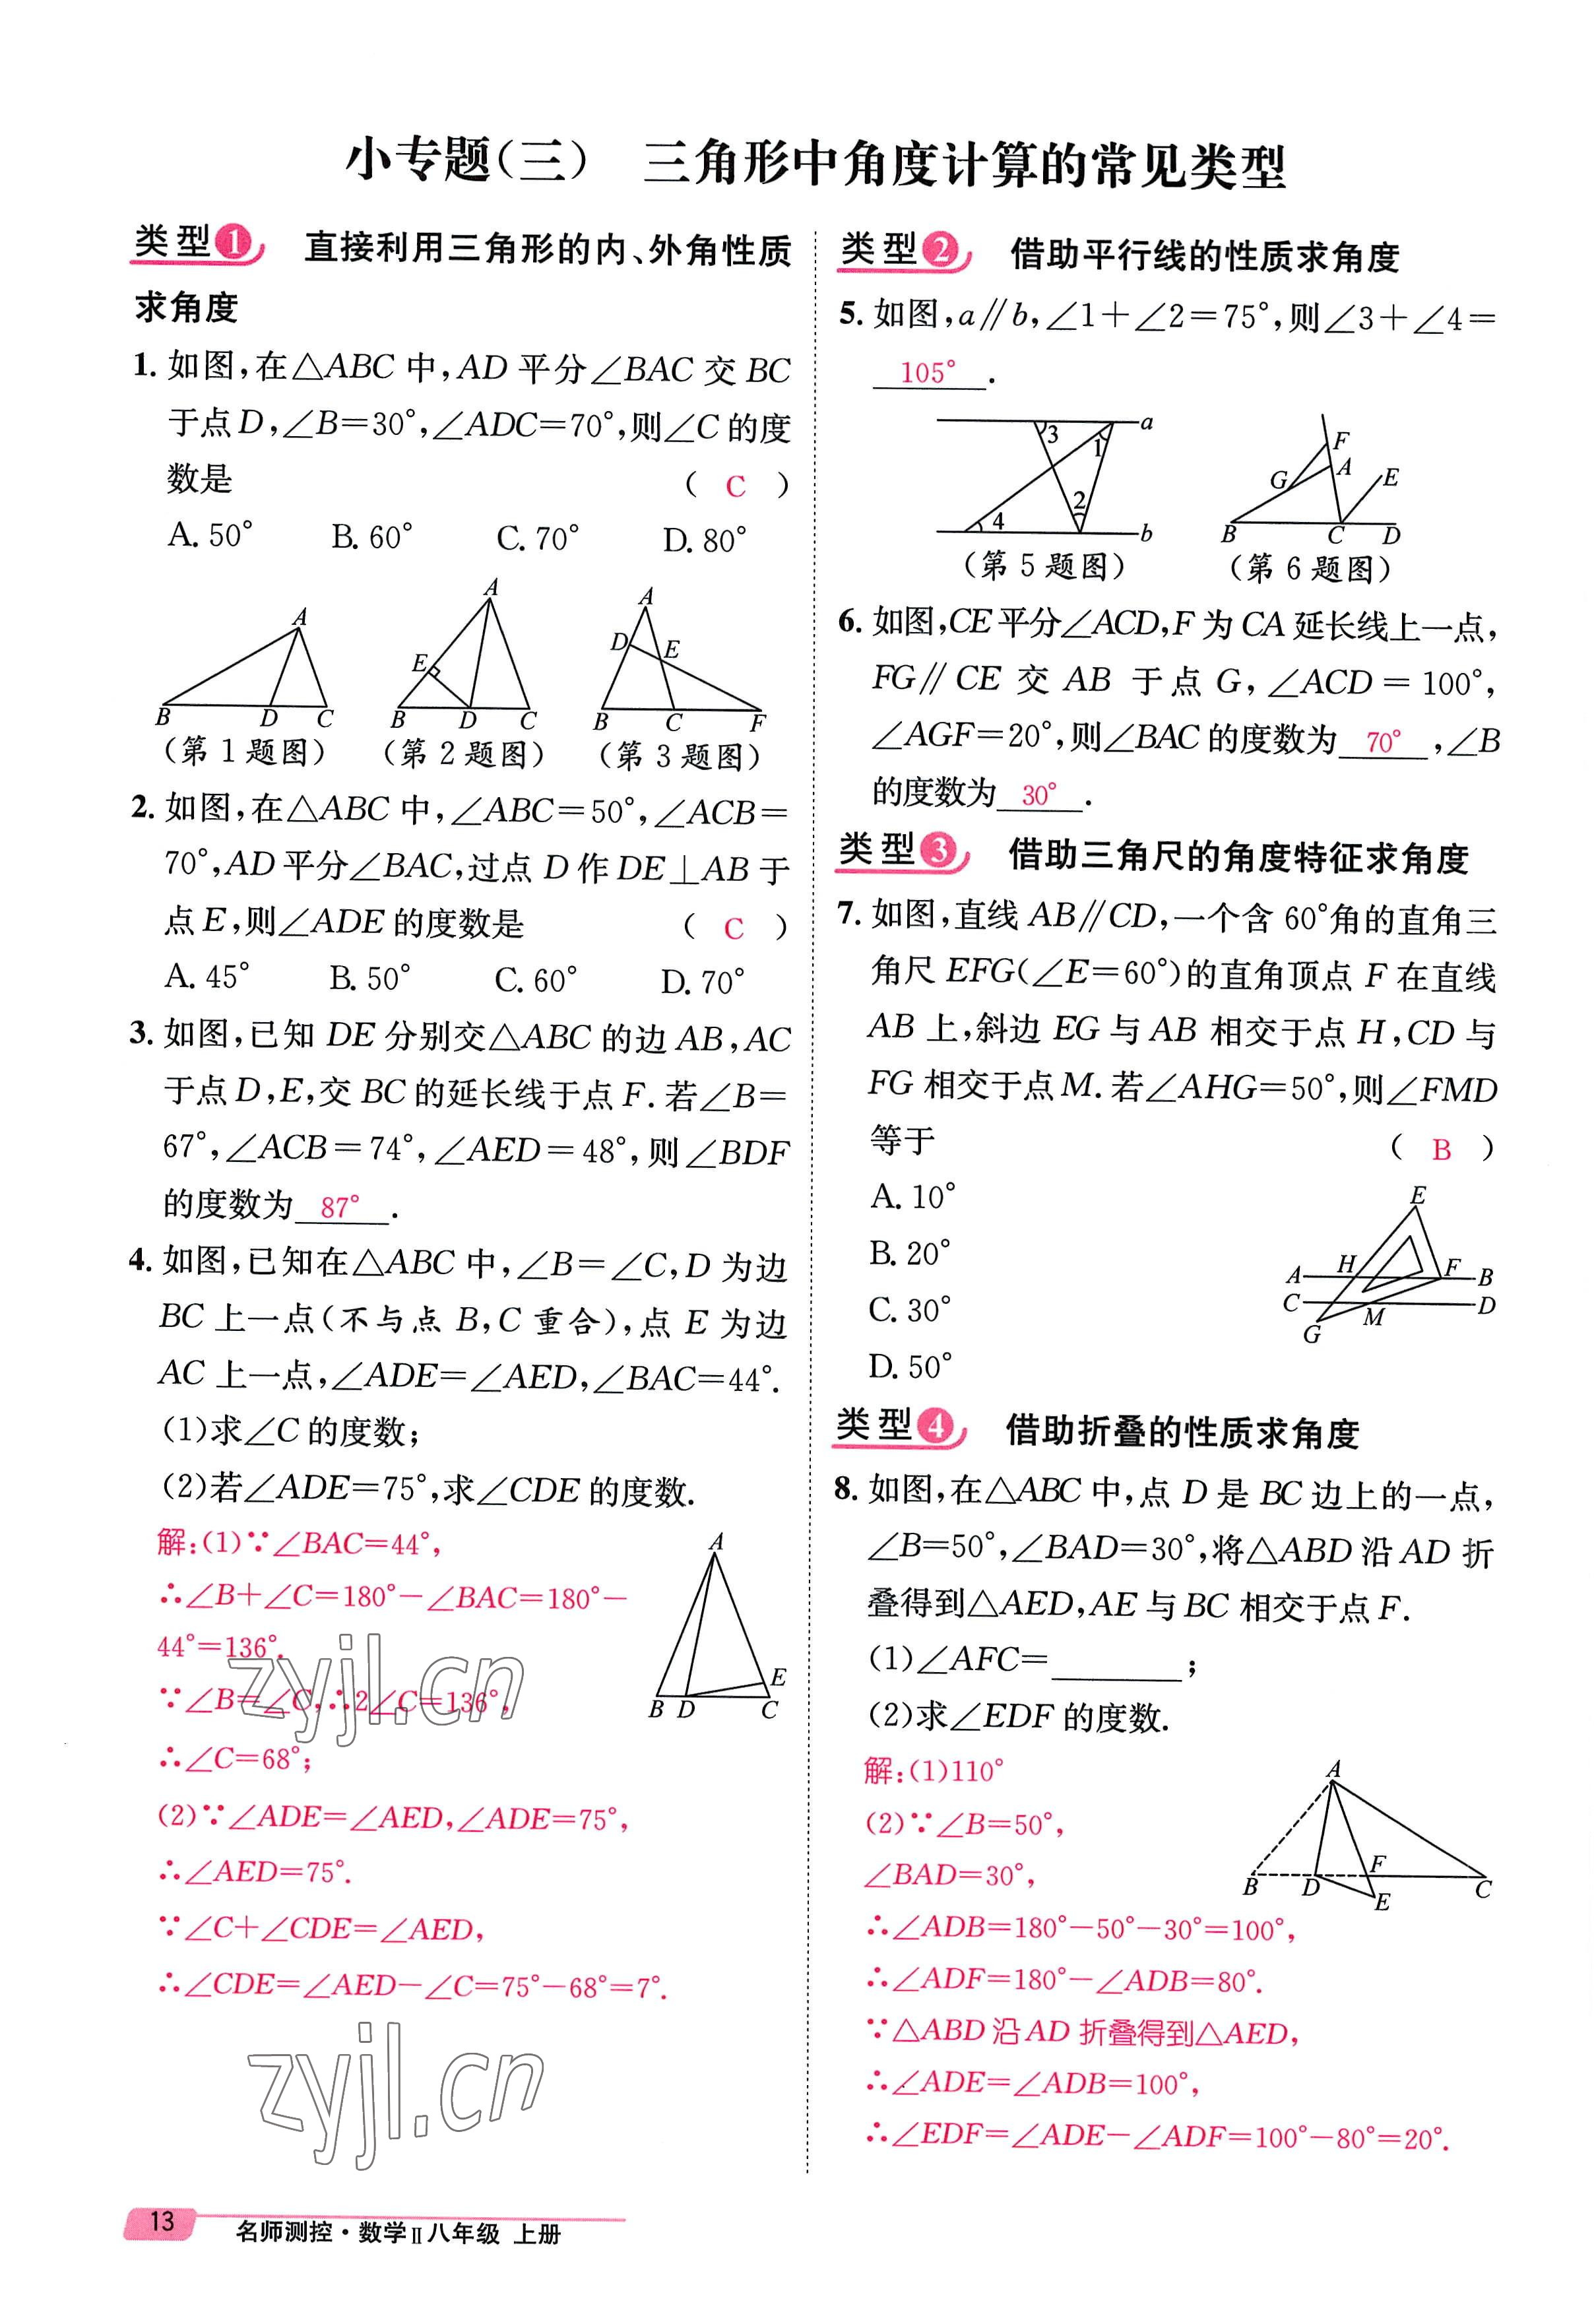 小专题(三) 三角形中角度计算的常见类型
类型1 直接利用三角形的内、外角性质
求角度
1. 如图,在△ABC 中,AD 平分∠BAC 交 BC
于点 D,∠B=30°,∠ADC=70°,则∠C 的度
数是 ( C )
A. 50° B. 60° C. 70° D. 80°
A
B D C
(第 1 题图)
A
E
B D C
(第 2 题图)
A
D E
B C F
(第 3 题图)
2. 如图,在△ABC 中,∠ABC=50°,∠ACB=
70°,AD 平分∠BAC,过点 D 作 DE⊥AB 于
点 E,则∠ADE 的度数是 ( C )
A. 45° B. 50° C. 60° D. 70°
3. 如图,已知 DE 分别交△ABC 的边 AB,AC
于点 D,E,交 BC 的延长线于点 F. 若∠B=
67°,∠ACB=74°,∠AED=48°,则∠BDF
的度数为 87° .
4. 如图,已知在△ABC 中,∠B=∠C,D 为边
BC 上一点(不与点 B,C 重合),点 E 为边
AC 上一点,∠ADE=∠AED,∠BAC=44°.
(1)求∠C 的度数;
(2)若∠ADE=75°,求∠CDE 的度数.
解:(1)∵∠BAC=44°,
∴∠B+∠C=180°-∠BAC=180°-
44°=136°.
∵∠B=∠C,∴2∠C=136°,
∴∠C=68°;
(2)∵∠ADE=∠AED,∠ADE=75°,
∴∠AED=75°.
∵∠C+∠CDE=∠AED,
∴∠CDE=∠AED-∠C=75°-68°=7°.
A
E
B D C
zyjl.cn
zyjl.cn
13
名师测控·数学Ⅱ八年级 上册
类型2 借助平行线的性质求角度
5. 如图,a∥b,∠1+∠2=75°,则∠3+∠4=
105° .
3 1 a
2
4 b
(第 5 题图)
F
A
G E
B C D
(第 6 题图)
6. 如图,CE 平分∠ACD,F 为 CA 延长线上一点,
FG∥CE 交 AB 于点 G,∠ACD=100°,
∠AGF=20°,则∠BAC 的度数为 70° ,∠B
的度数为 30° .
类型3 借助三角尺的角度特征求角度
7. 如图,直线 AB∥CD,一个含 60°角的直角三
角尺 EFG(∠E=60°)的直角顶点 F 在直线
AB 上,斜边 EG 与 AB 相交于点 H,CD 与
FG 相交于点 M. 若∠AHG=50°,则∠FMD
等于 ( B )
A. 10°
B. 20°
C. 30°
D. 50°
E
A H F B
C M D
G
类型4 借助折叠的性质求角度
8. 如图,在△ABC 中,点 D 是 BC 边上的一点,
∠B=50°,∠BAD=30°,将△ABD 沿 AD 折
叠得到△AED,AE 与 BC 相交于点 F.
(1)∠AFC=______;
(2)求∠EDF 的度数.
解:(1)110°
(2)∵∠B=50°,
∠BAD=30°,
∴∠ADB=180°-50°-30°=100°,
∴∠ADF=180°-∠ADB=80°.
∵△ABD 沿 AD 折叠得到△AED,
∴∠ADE=∠ADB=100°,
∴∠EDF=∠ADE-∠ADF=100°-80°=20°.
A
B D F C
E